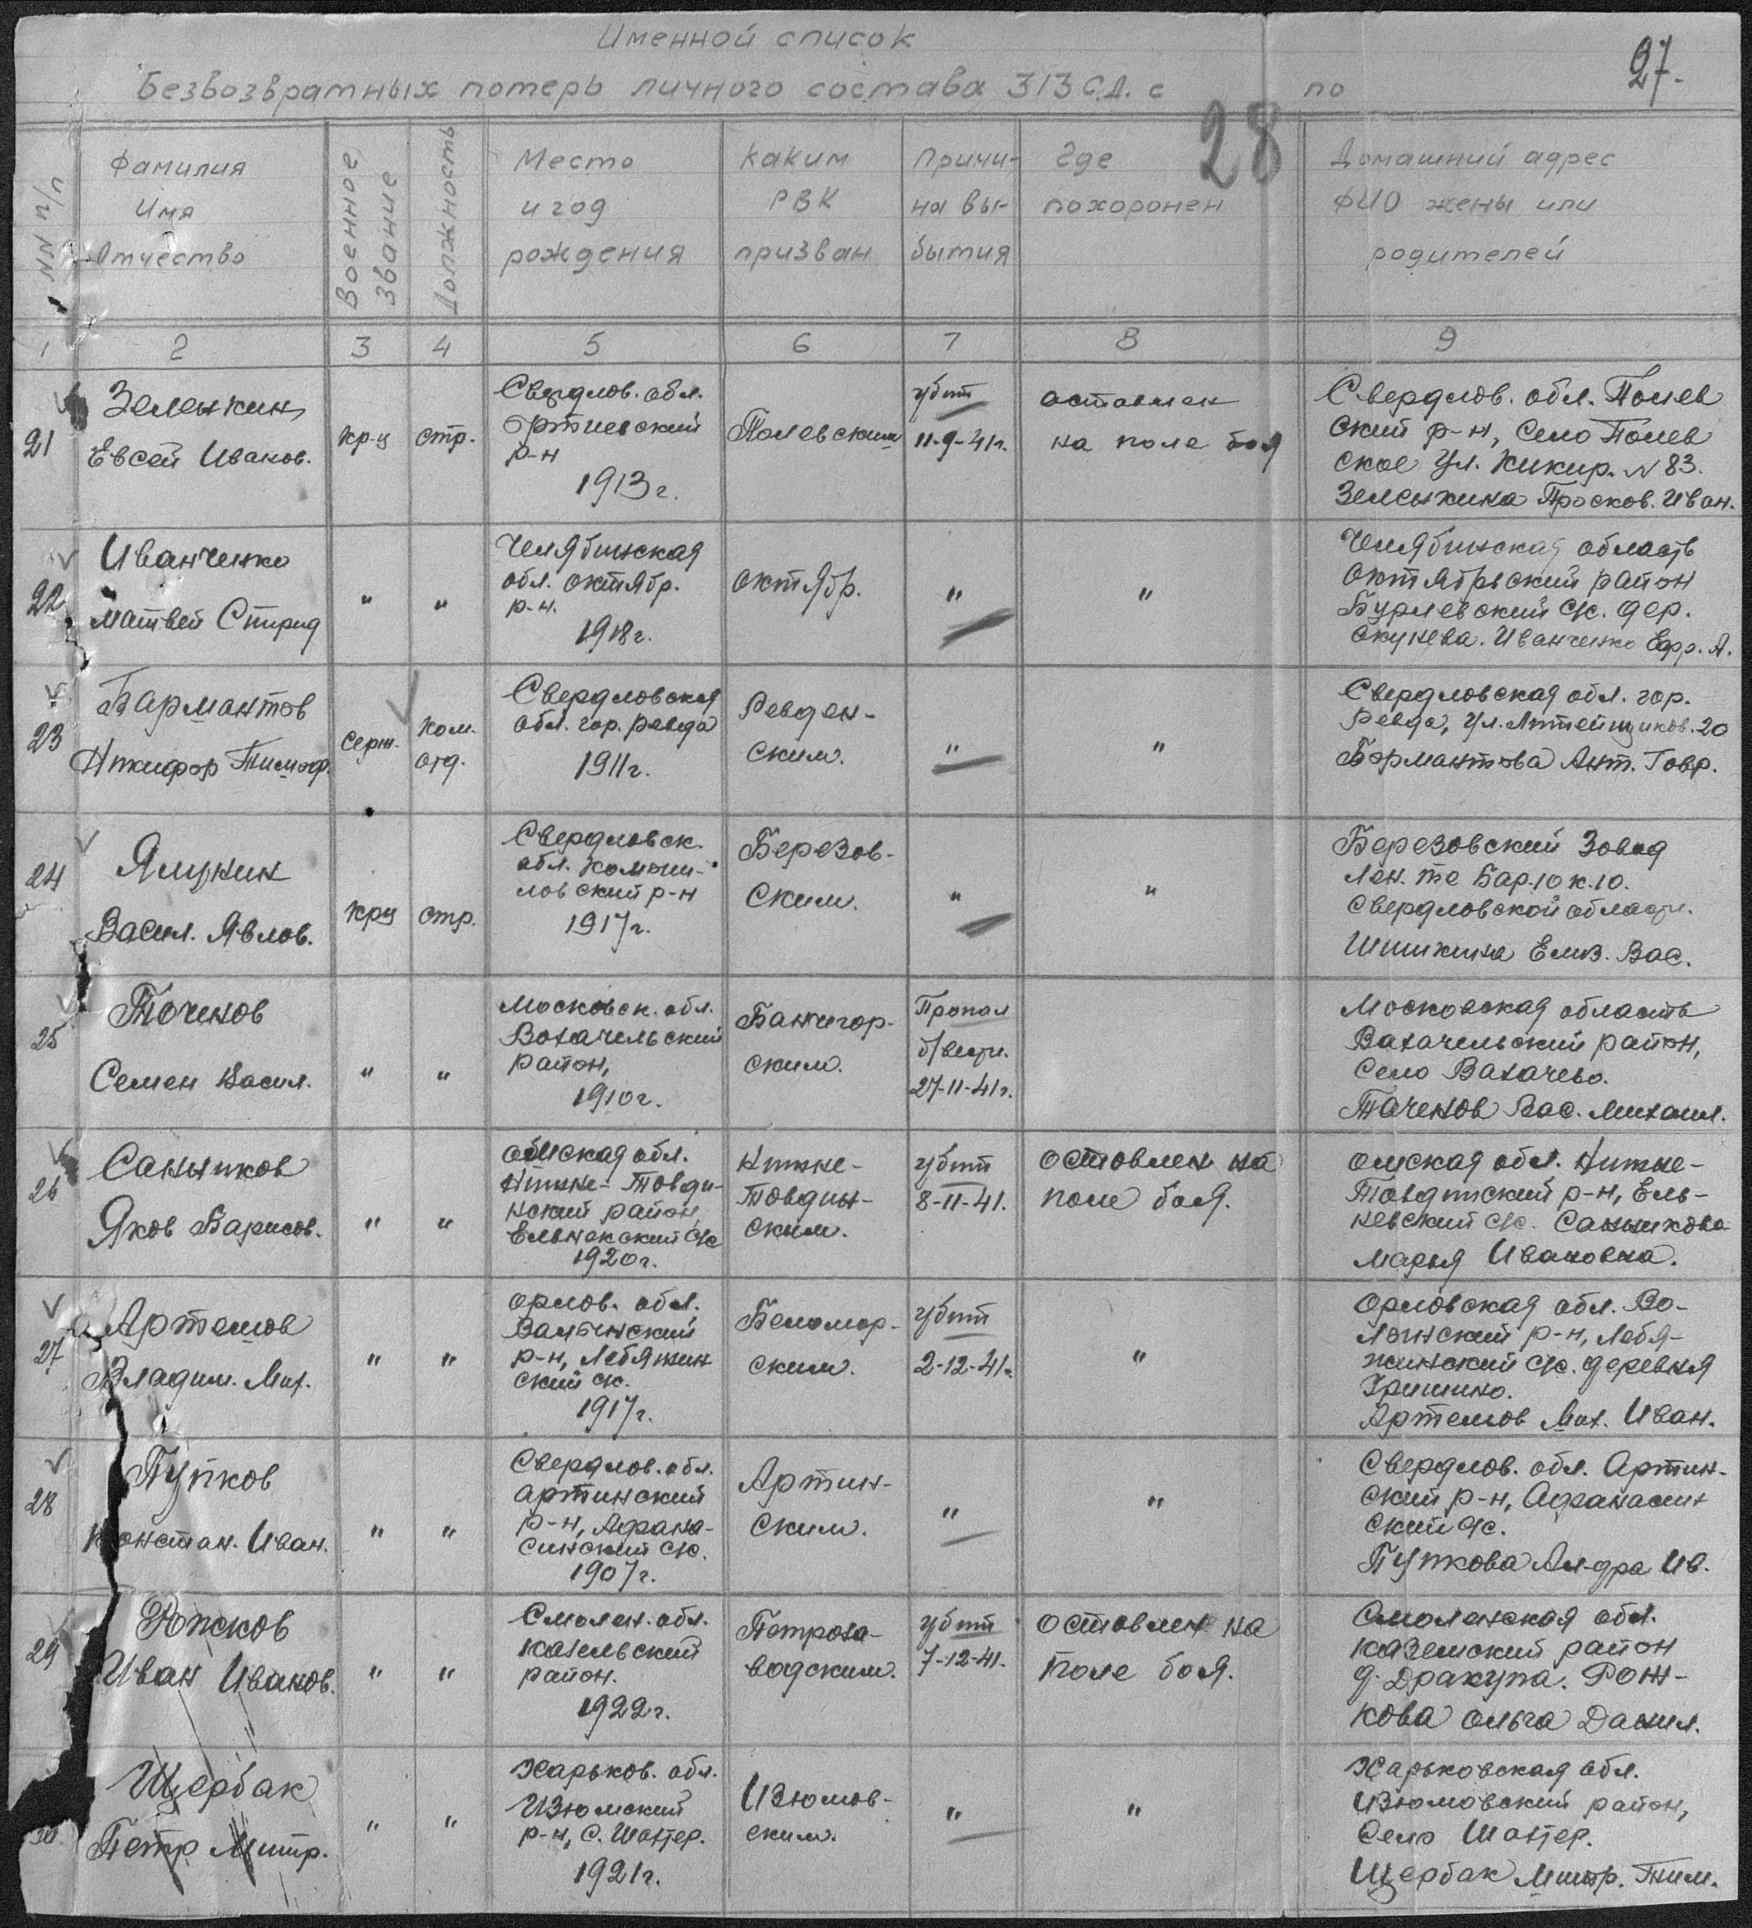 Именной список
27.
Безвозвратных потерь личного состава 313 С.Д. с по
28
NN п/п
Фамилия
Имя
Отчество
Военное
звание
Должность
Место
и год
рождения
Каким
РВК
призван
Причи-
на вы-
бытия
Где
похоронен
Домашний адрес
ФИО жены или
родителей
1 2 3 4 5 6 7 8 9
21
Зеленкин
Евсей Иванов.
кр-ц
стр.
Свердлов. обл.
Артиевский
р-н
1913 г.
Полевским
убит
11-9-41г.
оставлен
на поле боя
Свердлов. обл. Полев
ский р-н, село Полев
ское ул. Кикир. N 83.
Зеленкина Просков. Иван.
22
Иванченко
Матвей Спирид
"
"
Челябинская
обл. октябр.
р-н.
1918г.
октябр.
"
"
Челябинская область
октябрьский район
Бурлевский с/с. дер.
окунева. Иванченко Ефр. А.
23
Бармантов
Никифор Тимоф.
серж.
ком.
отд.
Свердловская
обл. гор. Ревда
1911г.
Ревден-
ским.
"
"
Свердловская обл. гор.
Ревда, ул. Литейщиков. 20
Бормантова Ант. Говр.
24
Ялунин
Васил. Явлов.
крц
стр.
Свердловск.
обл. Камыш-
ловский р-н
1917г.
Березов-
ским.
"
"
Березовский Завод
Лен. те Бар. 10 к. 10.
Свердловской области.
Шишкина Елиз. Вас.
25
Точенов
Семен Васил.
"
"
Московск. обл.
Вохачельский
район,
1910г.
ским.
Пропал
б/вести.
27-11-41г.
Московская область
Вахачельский район,
Село Вахачево.
Таченов Вас. Михаил.
26
Санников
Яков Барисов.
"
"
омская обл.
Нижне-Товди-
нский район,
с/с
1920г.
Нижне-
Товдин-
ским.
убит
8-11-41.
оставлен на
поле боя.
омская обл. Нижне-
Товдинский р-н, Ель-
невский с/с. Санникова
Марья Ивановна.
27
Артемов
Владим. Мих.
"
"
орлов. обл.
р-н, Лебяжин
ский с/с.
1917г.
Беломор-
ским.
убит
2-12-41г.
"
Орловская обл. Во-
лынский р-н, Лебя-
жинский с/с. деревня
Гришино.
Артемов Мих. Иван.
28
Пупков
Констан. Иван.
"
"
Свердлов. обл.
Артинский
р-н, Афана-
синский с/с.
1907г.
Артин-
ским.
"
"
Свердлов. обл. Артин-
ский р-н, Афанасин
ский с/с.
Пупкова Ал-дра Ив.
29
Иван Иванов.
"
"
Смолен. обл.
район.
1922г.
Петроза-
водским.
убит
7-12-41.
оставлен на
поле боя.
Смоленская обл.
район
д. Дракупа. Рож-
кова Ольга Данил.
30
Щербак
Петр Митр.
"
"
Харьков. обл.
Изюмский
р-н, с. Шахтер.
1921г.
Изюмов-
ским.
"
"
Харьковская обл.
Изюмовский район,
Село Шахтер.
Щербак Митр. Тим.